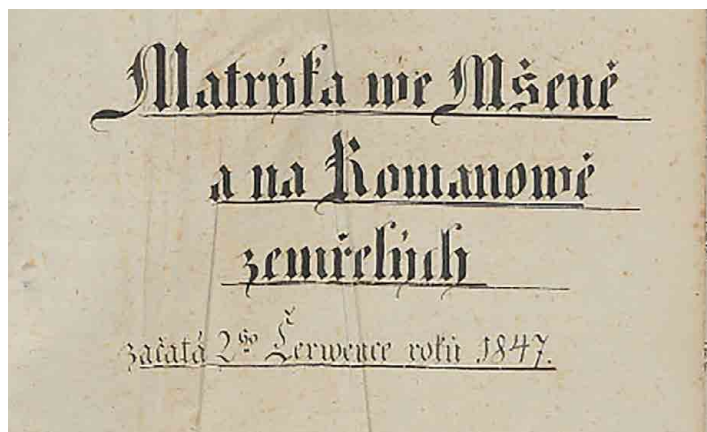 Matrýka we Mšeně
a na Romanowě
zemřelých
začatá 2ho Čerwence roků 1847.